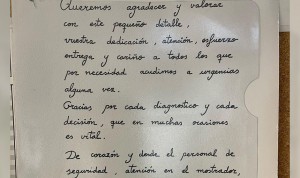 Queremos agradecer y valorar
con este pequeño detalle,
vuestra dedicación, atención, esfuerzo
entrega y cariño a todos los que
por necesidad acudimos a urgencias
alguna vez.
Gracias por cada diagnostico y cada
decisión, que en muchas ocasiones
es vital.
De corazón y desde el personal de
seguridad, atención en el mostrador,